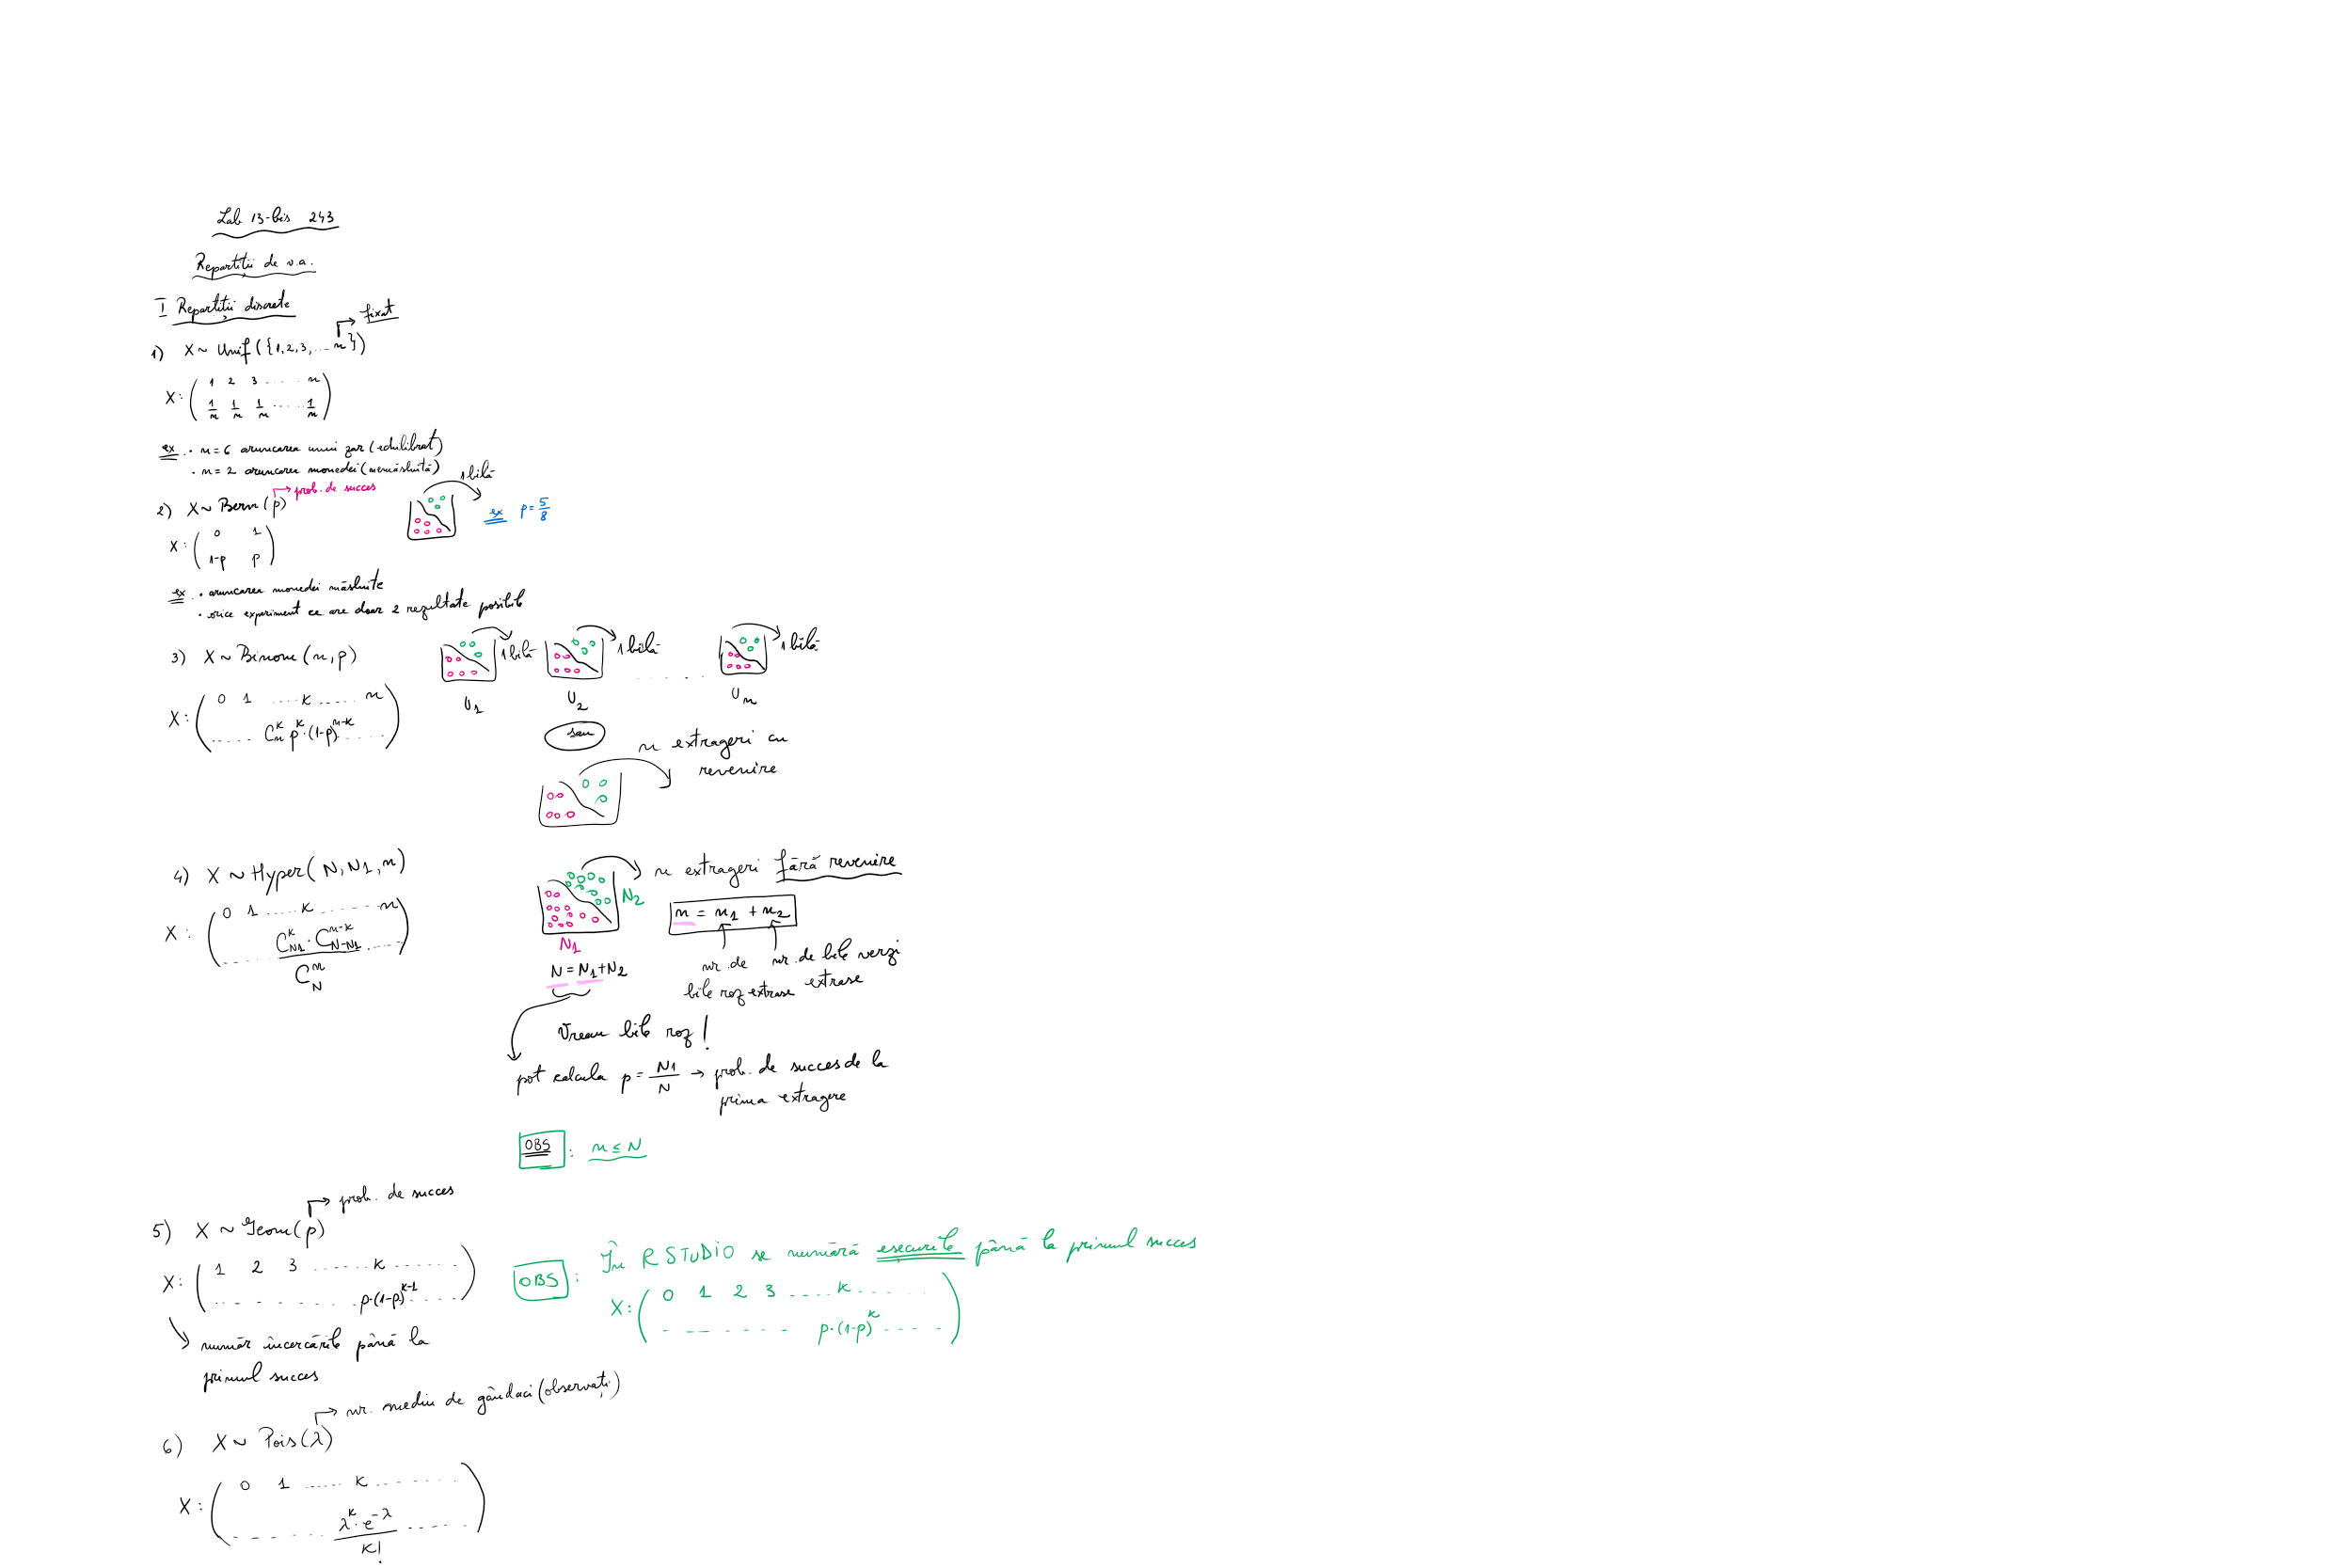 Lab 13-bis 243
Repartiții de v.a.
I Repartiții discrete
1) X ~ Unif({1,2,3,...n}) → fixat
X: ( 1 2 3 ..... n )
( 1/n 1/n 1/n ..... 1/n )
ex. • n=6 aruncarea unui zar (echilibrat)
• n=2 aruncarea monedei (nemăsluită)
2) X ~ Bern(p) → prob. de succes
1 bilă
ex p = 5/8
X: ( 0 1 )
( 1-p p )
ex. • aruncarea monedei măsluite
• orice experiment ce are doar 2 rezultate posibile
3) X ~ Binom(n,p)
1 bilă 1 bilă ..... 1 bilă
U₁ U₂ Uₙ
X: ( 0 1 ....k..... n )
( ..... Cₙᵏ pᵏ·(1-p)ⁿ⁻ᵏ ..... )
sau
n extrageri cu
revenire
4) X ~ Hyper(N,N1,n)
n extrageri fără revenire
X: ( 0 1 .....k....... n )
( ..... C_{N1}^k · C_{N-N1}^{n-k} / C_N^n ..... )
N₂
n = n₁ + n₂
N₁
N = N₁+N₂
nr. de bile roz extrase
nr. de bile verzi extrase
Vreau bile roz!
pot calcula p = N1/N → prob. de succes de la
prima extragere
OBS: n ≤ N
5) X ~ Geom(p) → prob. de succes
X: ( 1 2 3 ......k...... )
( ........ p·(1-p)^{k-1} ..... )
număr încercările până la
primul succes
OBS: În R STUDIO se numără eșecurile până la primul succes
X: ( 0 1 2 3 ....k...... )
( ........ p·(1-p)^k ..... )
6) X ~ Pois(λ) → nr. mediu de gândaci (observați)
X: ( 0 1 ...... k ....... )
( ....... λᵏ·e^{-λ} / k! ...... )